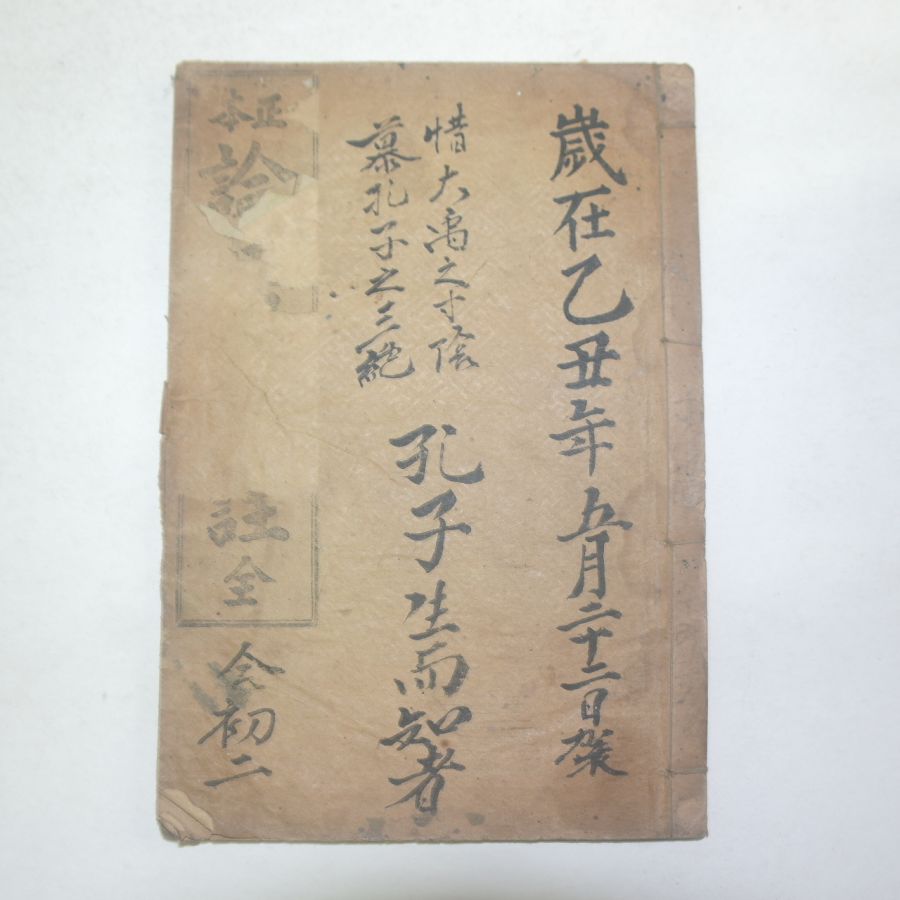 歲在乙丑年五月二十二日
惜大禹之寸陰
慕孔子之三絶
孔子生而知者
正本
論
註全
初二